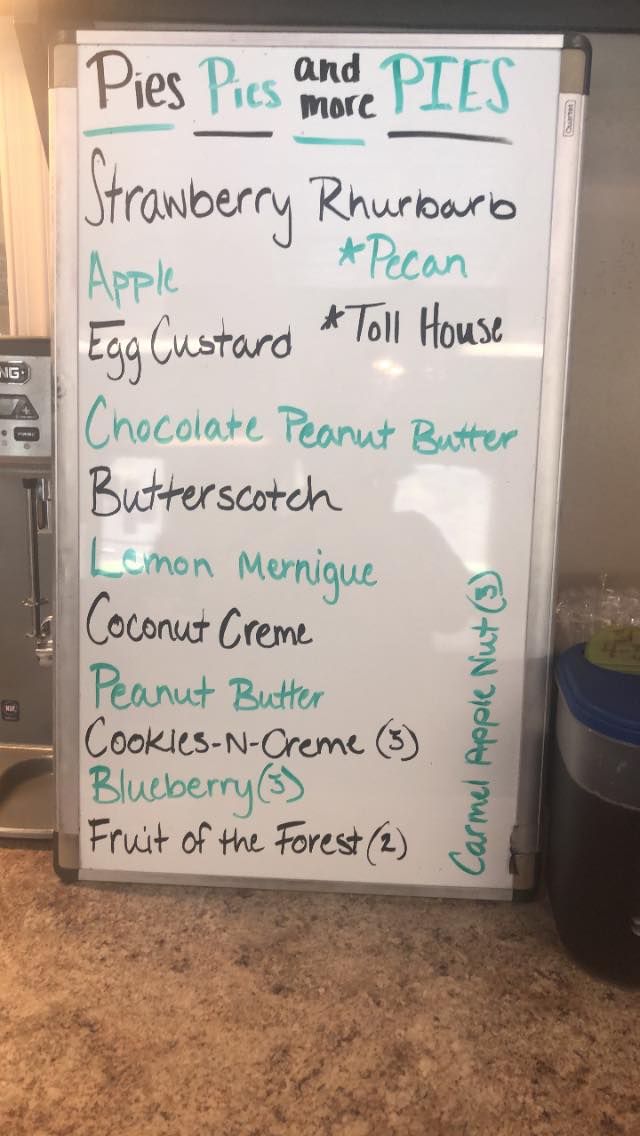 Pies Pies and more PIES
Strawberry Rhurbarb
Apple
*Pecan
Egg Custard
*Toll House
Chocolate Peanut Butter
Butterscotch
Lemon Mernigue
Coconut Creme
Peanut Butter
Cookies-N-Creme (3)
Blueberry (3)
Fruit of the Forest (2)
Carmel Apple Nut (3)
Quartet
NG